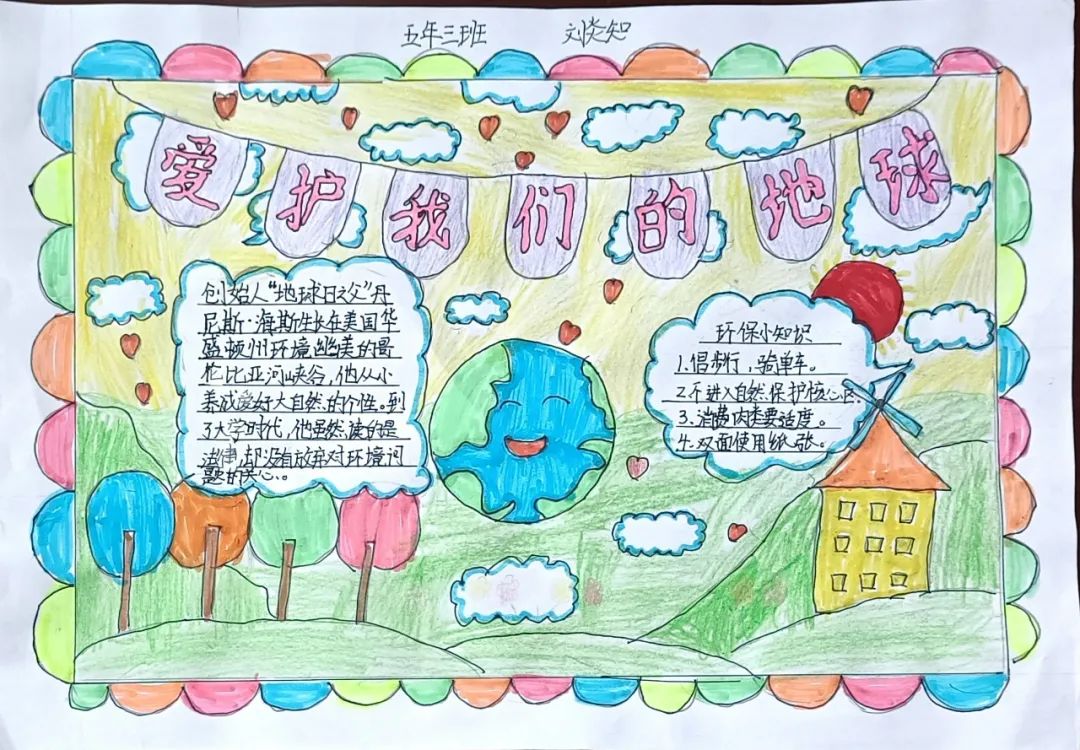 五年三班 刘炎知
爱护我们的地球
创始人“地球日之父”丹
尼斯·海斯生长在美国华
盛顿州环境幽美的哥
伦比亚河峡谷,他从小
养成爱好大自然的个性。到
了大学时代,他虽然读的是
法律,却没有放弃对环境问
题的关心。
环保小知识
1.倡步行,骑单车。
2.不进入自然保护核心区.
3.消费肉类要适度。
4.双面使用纸张。